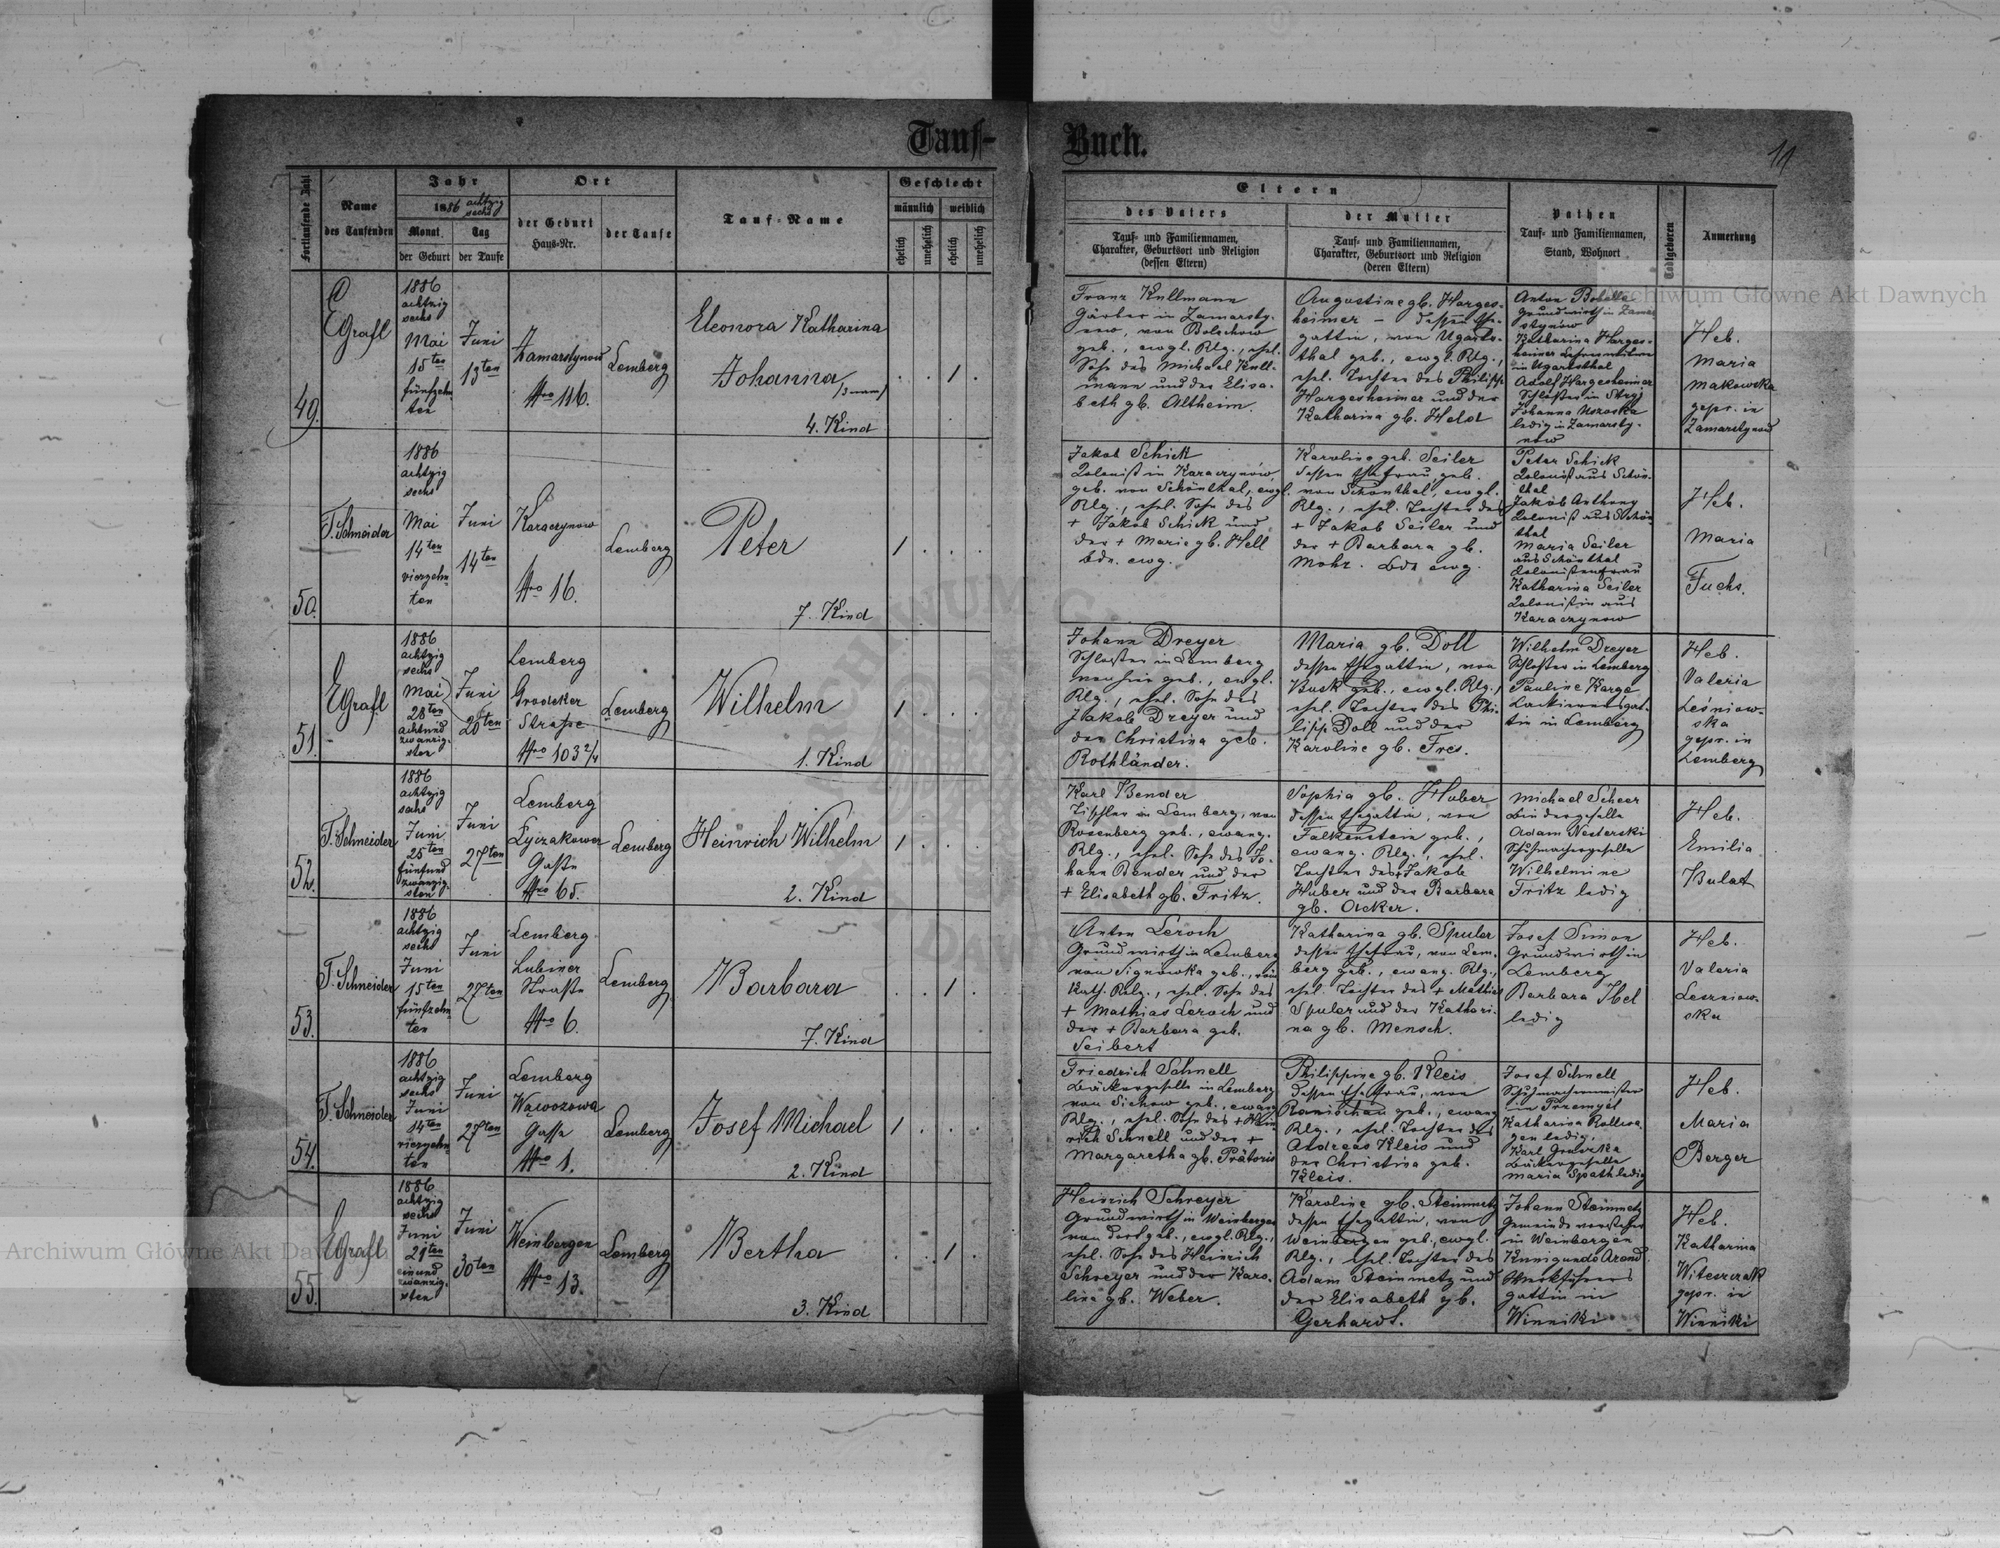 Tauf-
Buch.
11
Fortlaufende Zahl
Name
des Taufenden
Jahr
1886 achtzig
sechs
Monat
Tag
der Geburt
der Taufe
Ort
der Geburt
Haus-Nr.
der Taufe
Tauf-Name
Geschlecht
männlich
weiblich
ehelich
unehelich
ehelich
unehelich
Eltern
des Vaters
Tauf- und Familiennamen,
Charakter, Geburtsort und Religion
(dessen Eltern)
der Mutter
Tauf- und Familiennamen,
Charakter, Geburtsort und Religion
(deren Eltern)
Pathen
Tauf- und Familiennamen,
Stand, Wohnort
Todtgeboren
Anmerkung
49.
EGrafl
1886
achtzig
sechs
Mai
15ten
fünfzehn
ten
Juni
13ten
Zamarstynow
Nro 116.
Lemberg
Eleonora Katharina
Johanna
4. Kind
1
Franz Kullmann
Gärber in Zamarsty-
now, von Bolechow
geb., evgl. Rlg., ehel.
Sohn des Michael Kull-
mann und der Elisa-
beth gb. Altheim.
Augustine gb. Harges-
heimer - dessen Ehe-
gattin, von Ugarts-
thal geb., evgl. Rlg.,
ehel. Tochter des Philipp
Hargesheimer und der
Katharina gb. Held
Anton
Grundwirth in Zamar
stynow
Katharina Harges-
heimer
in Ugartsthal
Adolf Hargesheimer
Schlosser in Stryj
Johanna
ledig in Zamarsty-
now
Heb.
Maria
Makowska
gepr. in
Zamarstynow
50.
T. Schneider
1886
achtzig
sechs
Mai
14ten
vierzehn
ten
Juni
14ten
Karaczynow
Nro 16.
Lemberg
Peter
7. Kind
1
Jakob Schick
Kolonist in Karaczynow,
geb. von Schönthal, evgl.
Rlg., ehel. Sohn des
+ Jakob Schick und
der + Marie gb. Hell
bde. evg.
Karoline geb. Seiler
dessen Ehefrau, geb.
von Schönthal, evgl.
Rlg., ehel. Tochter des
+ Jakob Seiler und
der + Barbara gb.
Mohr. bde evg.
Peter Schick
Kolonist aus Schön-
thal
Jakob Anthony
Kolonist aus Schön
thal
Maria Seiler
aus Schönthal
Kolonistenfrau
Katharina Seiler
Kolonistin aus
Karaczynow
Heb.
Maria
Fuchs.
51.
EGrafl
1886
achtzig
sechs
Mai
28ten
achtund
zwanzig-
sten
Juni
20ten
Lemberg
Grodeker
Straße
Nro 103 2/4
Lemberg
Wilhelm
1. Kind
1
Johann Dreyer
Schlosser in Lemberg,
von hier geb., evgl.
Rlg., ehel. Sohn des
Jakob Dreyer und
der Christina geb.
Rothländer.
Maria gb. Doll
dessen Ehegattin, von
Busk geb., evgl. Rlg.,
ehel. Tochter des Phi-
lipp Doll und der
Karoline gb. Fres.
Wilhelm Dreyer
Schlosser in Lemberg
Pauline Karge
Lackierersgat-
tin in Lemberg
Heb.
Valeria
Leśniow-
ska
gepr. in
Lemberg
52.
T. Schneider
1886
achtzig
sechs
Juni
25ten
fünfund
zwanzig-
sten
Juni
27ten
Lemberg
Łyczakower
Gaße
Nro 65.
Lemberg
Heinrich Wilhelm
2. Kind
1
Karl Bender
Tischler in Lemberg, von
Rosenberg geb., evang.
Rlg., ehel. Sohn des Jo-
hann Bender und der
+ Elisabeth gb. Fritz.
Sophia gb. Huber
dessen Ehegattin, von
Falkenstein geb.,
evang. Rlg., ehel.
Tochter des Jakob
Huber und der Barbara
gb. Acker.
Michael Scheer
Bindergeselle
Adam Nesterski
Schuhmachergeselle
Wilhelmine
Fritz ledig
Heb.
Emilia
Bulat
53.
T. Schneider
1886
achtzig
sechs
Juni
15ten
fünfzehn-
ten
Juni
27ten
Lemberg
Lubiner
Straße
Nro 6.
Lemberg
Barbara
7. Kind
1
Anton Leroch
Grundwirth in Lemberg
von Signowka geb., röm
kath. Rlg., ehel. Sohn des
+ Mathias Leroch und
der + Barbara geb.
Seibert
Katharina gb. Spuler
dessen Ehefrau, von Lem-
berg geb., evang. Rlg.,
ehel. Tochter des + Mathias
Spuler und der Kathari-
na gb. Mensch.
Josef Simon
Grundwirth in
Lemberg
Barbara Ibel
ledig
Heb.
Valeria
Leszniow-
ska
54.
T. Schneider
1886
achtzig
sechs
Juni
14ten
vierzehn-
ten
Juni
27ten
Lemberg
Wąwozowa
Gasse
Nro 1.
Lemberg
Josef Michael
2. Kind
1
Friedrich Schnell
Bäckergeselle in Lemberg
von Sichow geb., evang
Rlg., ehel. Sohn des + Hein
rich Schnell und der +
Margaretha gb. Prätoris
Philippine gb. Kleis
dessen Ehefrau, von
Ramischau geb., evang
Rlg., ehel. Tochter des
Andreas Kleis und
der Christina geb.
Kleis.
Josef Schnell
Schuhmachermeister
in Przemysl
Katharina
ledig.
Karl
Bäckergeselle
Maria Spath ledig
Heb.
Maria
Berger
55.
EGrafl
1886
achtzig
sechs
Juni
21ten
einund
zwanzig-
sten
Juni
30ten
Weinbergen
Nro 13.
Lemberg
Bertha
3. Kind
1
Heinrich Schreyer
Grundwirth in Weinbergen
von dort geb., evgl. Rlg.,
ehel. Sohn des Heinrich
Schreyer und der Karo-
line gb. Weber.
Karoline gb. Steinmetz
dessen Ehegattin, von
Weinbergen geb., evgl.
Rlg., ehel. Tochter des
Adam Steinmetz und
der Elisabeth gb.
Gerhardt.
Johann Steinmetz
Gemeindevorsteher
in Weinbergen
Kunigunde Arond
Werkführers
gattin in
Winniki
Heb.
Katharina
Witeszczak
gepr. in
Winniki
Archiwum Główne Akt Dawnych
Archiwum Główne Akt Dawnych